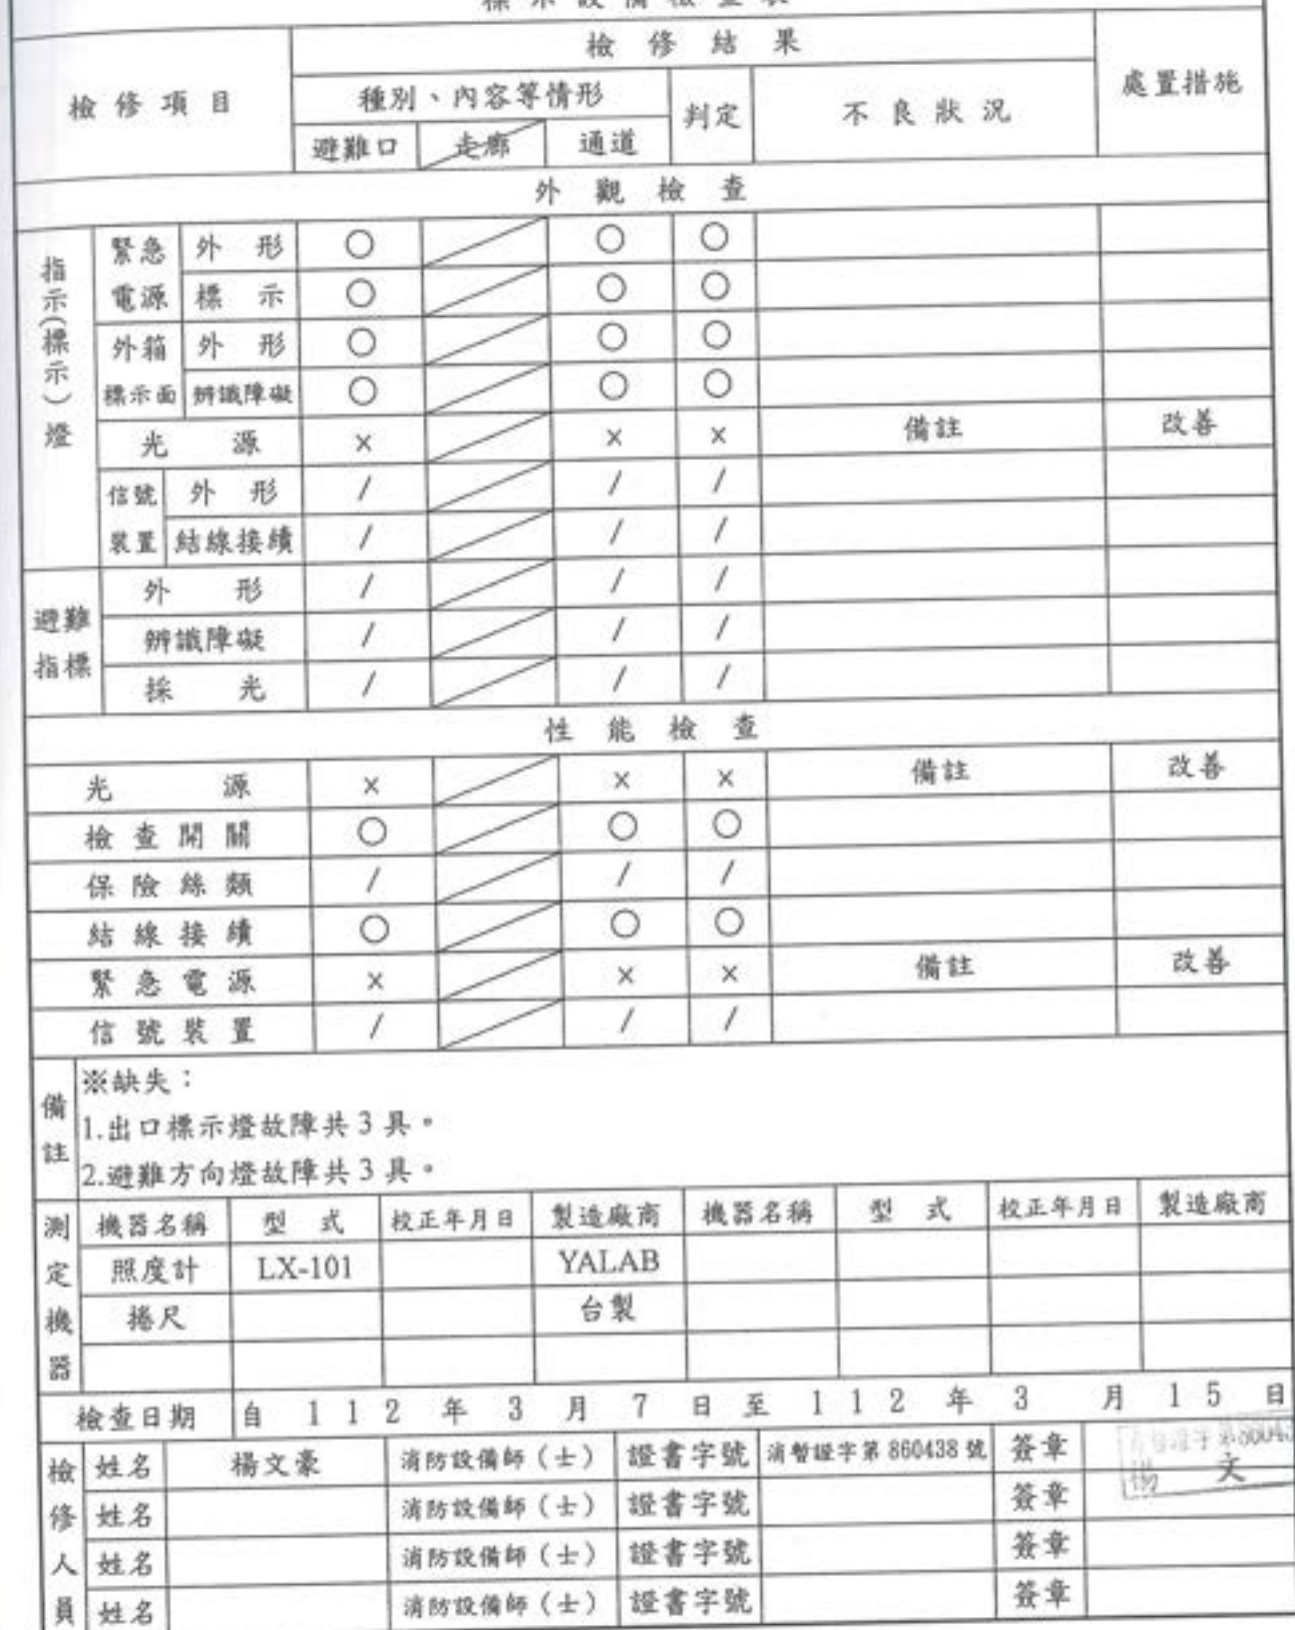 標示設備檢查表
檢修項目 檢修結果 處置措施
種別、內容等情形 判定 不良狀況
避難口 走廊 通道
外觀檢查
指示(標示)燈 緊急電源 外形 ○ ○ ○
標示 ○ ○ ○
外箱標示面 外形 ○ ○ ○
辨識障礙 ○ ○ ○
光源 × × × 備註 改善
信號裝置 外形 / / /
結線接續 / / /
避難指標 外形 / / /
辨識障礙 / / /
採光 / / /
性能檢查
光源 × × × 備註 改善
檢查開關 ○ ○ ○
保險絲類 / / /
結線接續 ○ ○ ○
緊急電源 × × × 備註 改善
信號裝置 / / /
備註 ※缺失：
1.出口標示燈故障共3具。
2.避難方向燈故障共3具。
測定機器 機器名稱 型式 校正年月日 製造廠商 機器名稱 型式 校正年月日 製造廠商
照度計 LX-101 YALAB
捲尺 台製
檢查日期 自 112 年 3 月 7 日至 112 年 3 月 15 日
檢修人員 姓名 楊文豪 消防設備師（士） 證書字號 消暫證字第860438號 簽章 楊 文
姓名 消防設備師（士） 證書字號 簽章
姓名 消防設備師（士） 證書字號 簽章
姓名 消防設備師（士） 證書字號 簽章